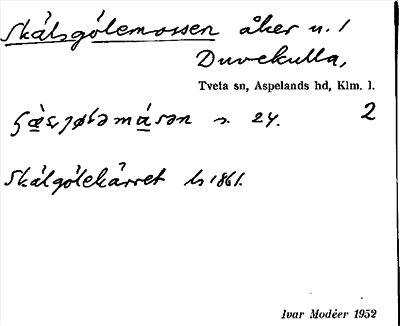 Skålsgölemossen åker n. 1
Duvekulla,
Tveta sn, Aspelands hd, Klm. l.
s. 24. 2
Skålgölekärret ls 1861.
Ivar Modéer 1952